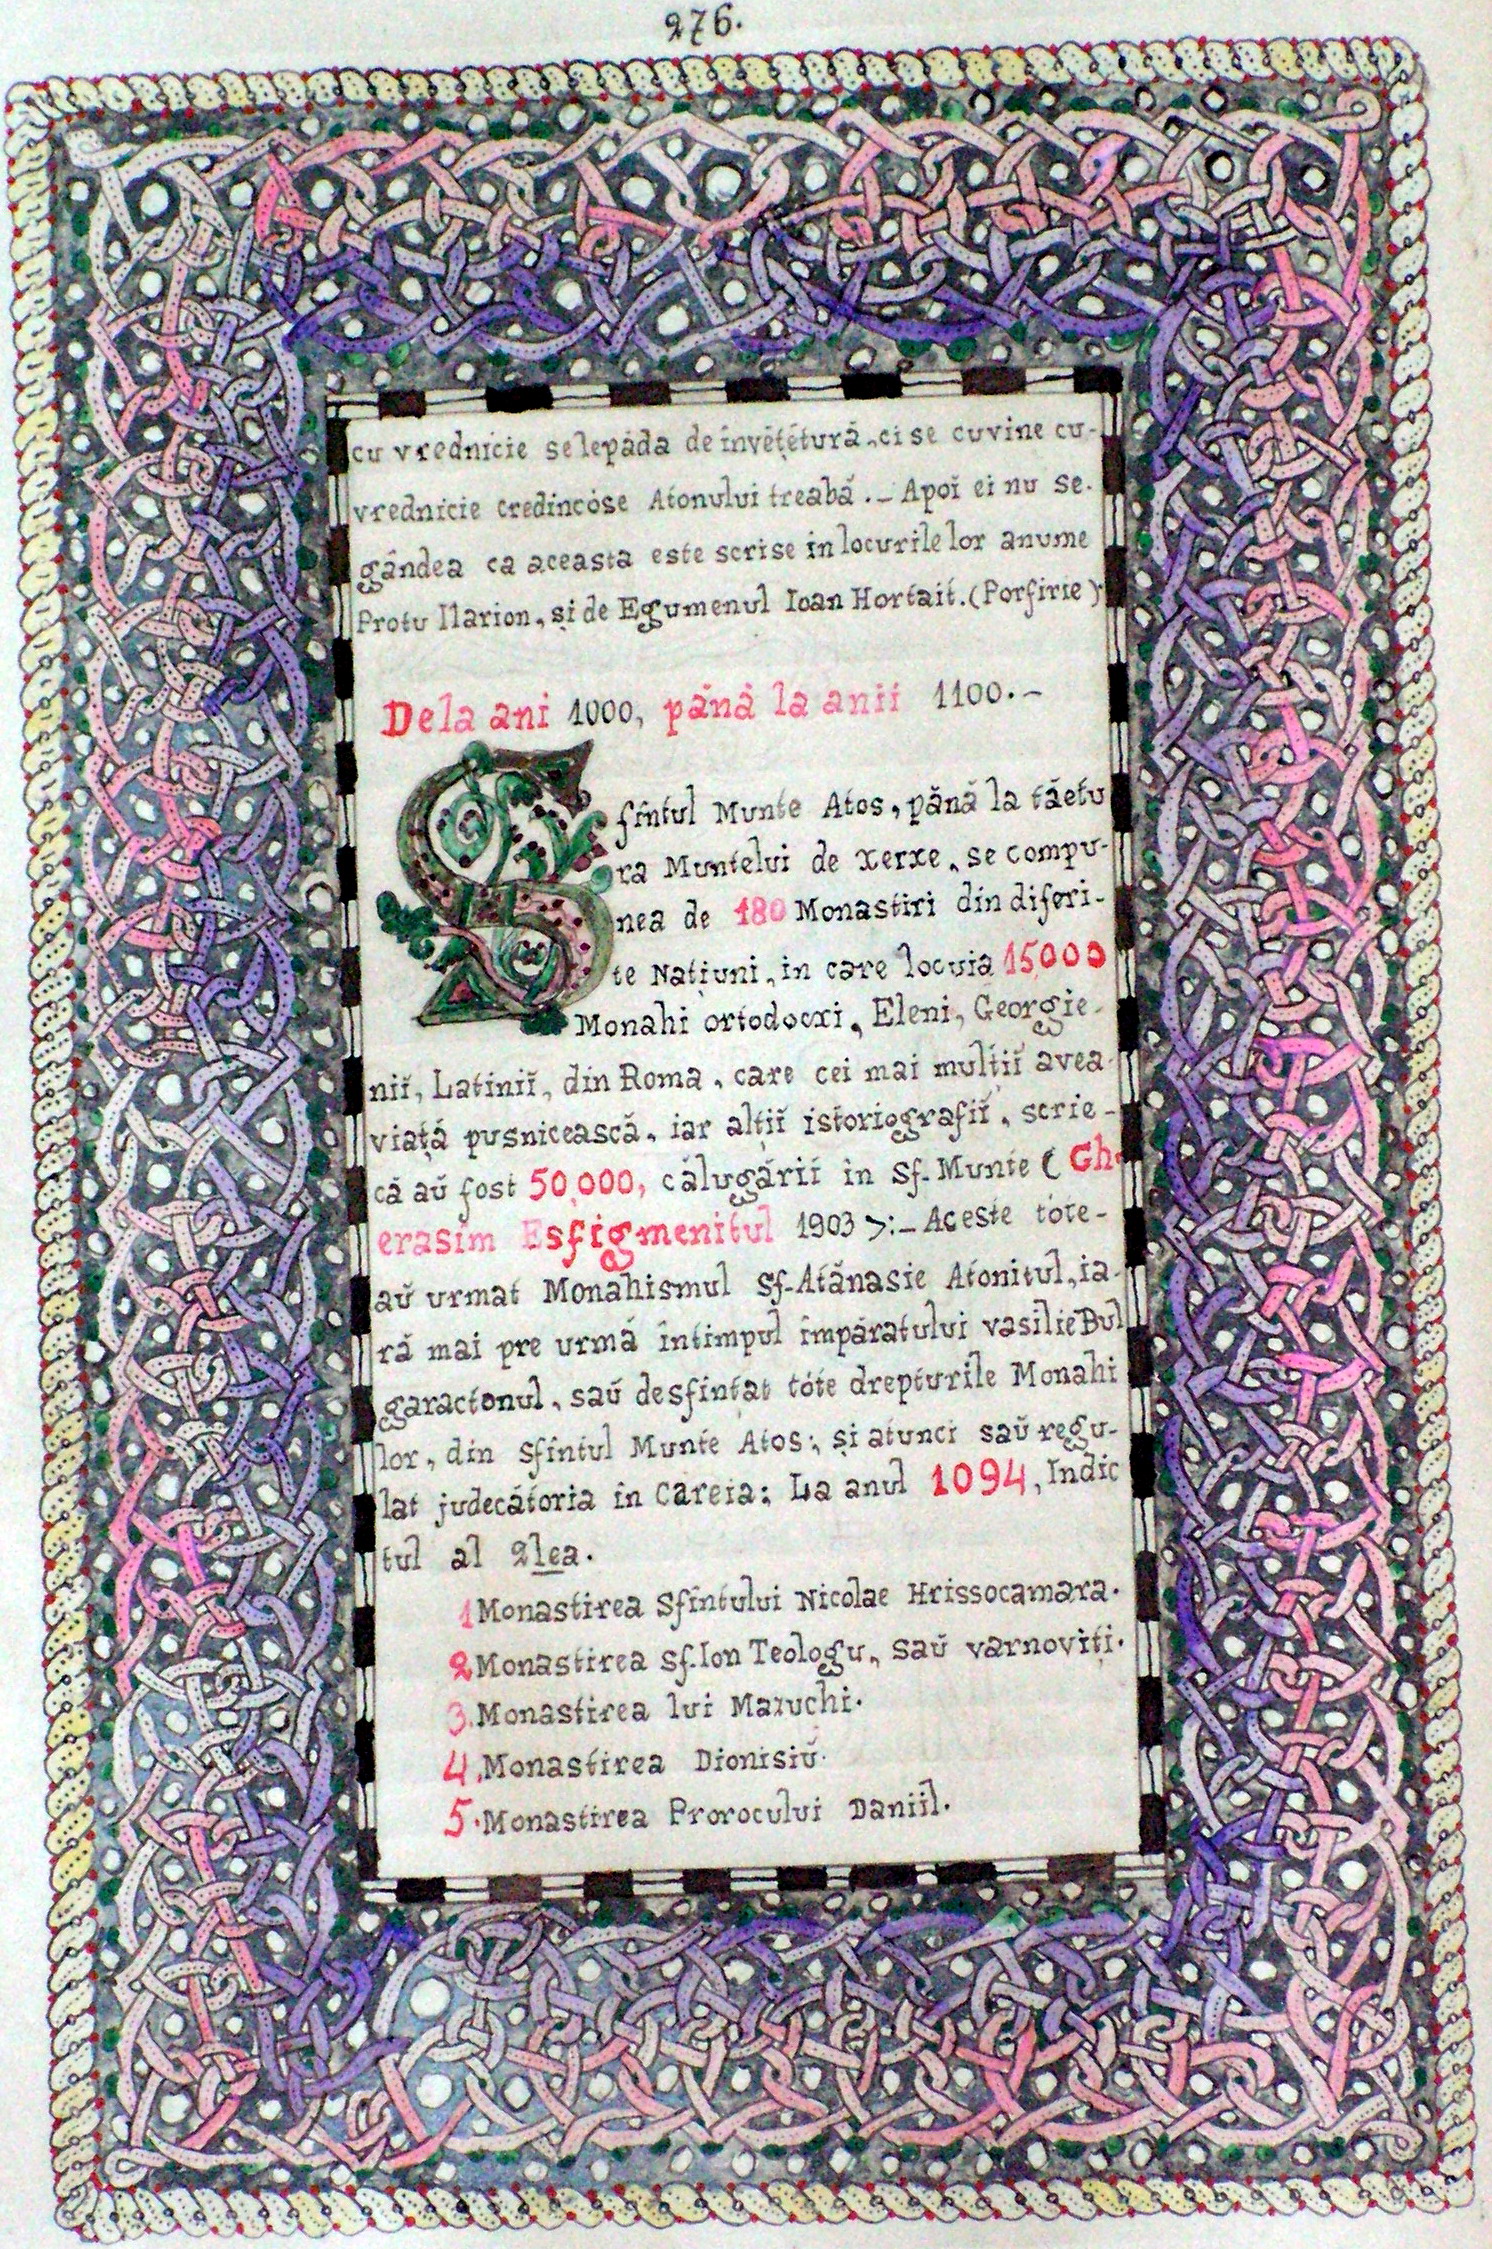 276.
cu vrednicie se lepăda de învĕțĕtură, ci se cuvine cu-
vrednicie credincóse Atonului treabă._ Apoĭ ei nu se.
gândea ca aceasta este scrise in locurile lor anume
Protu Ilarion, și de Egumenul Ioan Hortait. (Porfirie)
De la ani 1000, pănă la anii 1100.-
Sfintul Munte Atos, pănă la tăetu
ra Muntelui de Xerxe, se compu-
nea de 180 Monastiri din diferi-
te Națiuni, in care locuia 15000
Monahi ortodocxi, Eleni, Georgie-
niĭ, Latiniĭ, din Roma, care cei mai mulțiĭ avea-
viață pusnicească, iar alțiĭ istoriografiĭ, scrie-
că aŭ fost 50,000, călugării in Sf. Munte (Gh-
erasim Esfigmenitul 1903 >:_ Aceste tóte-
aŭ urmat Monahismul Sf. Atănasie Atonitul, ia-
ră mai pre urmă întimpul împăratului vasilie Bul
garactonul, saŭ desfințat tóte drepturile Monahi
lor, din Sfintul Munte Atos; și atunci saŭ regu-
lat judecătoria in Careia; La anul 1094, Indic
tul al 2lea.
1 Monastirea Sfîntului Nicolae Hrissocamara.
2 Monastirea Sf. Ion Teologu, saŭ varnoviți.
3. Monastirea lui Mazuchi.
4. Monastirea Dionisiŭ.
5. Monastirea Prorocului Daniil.